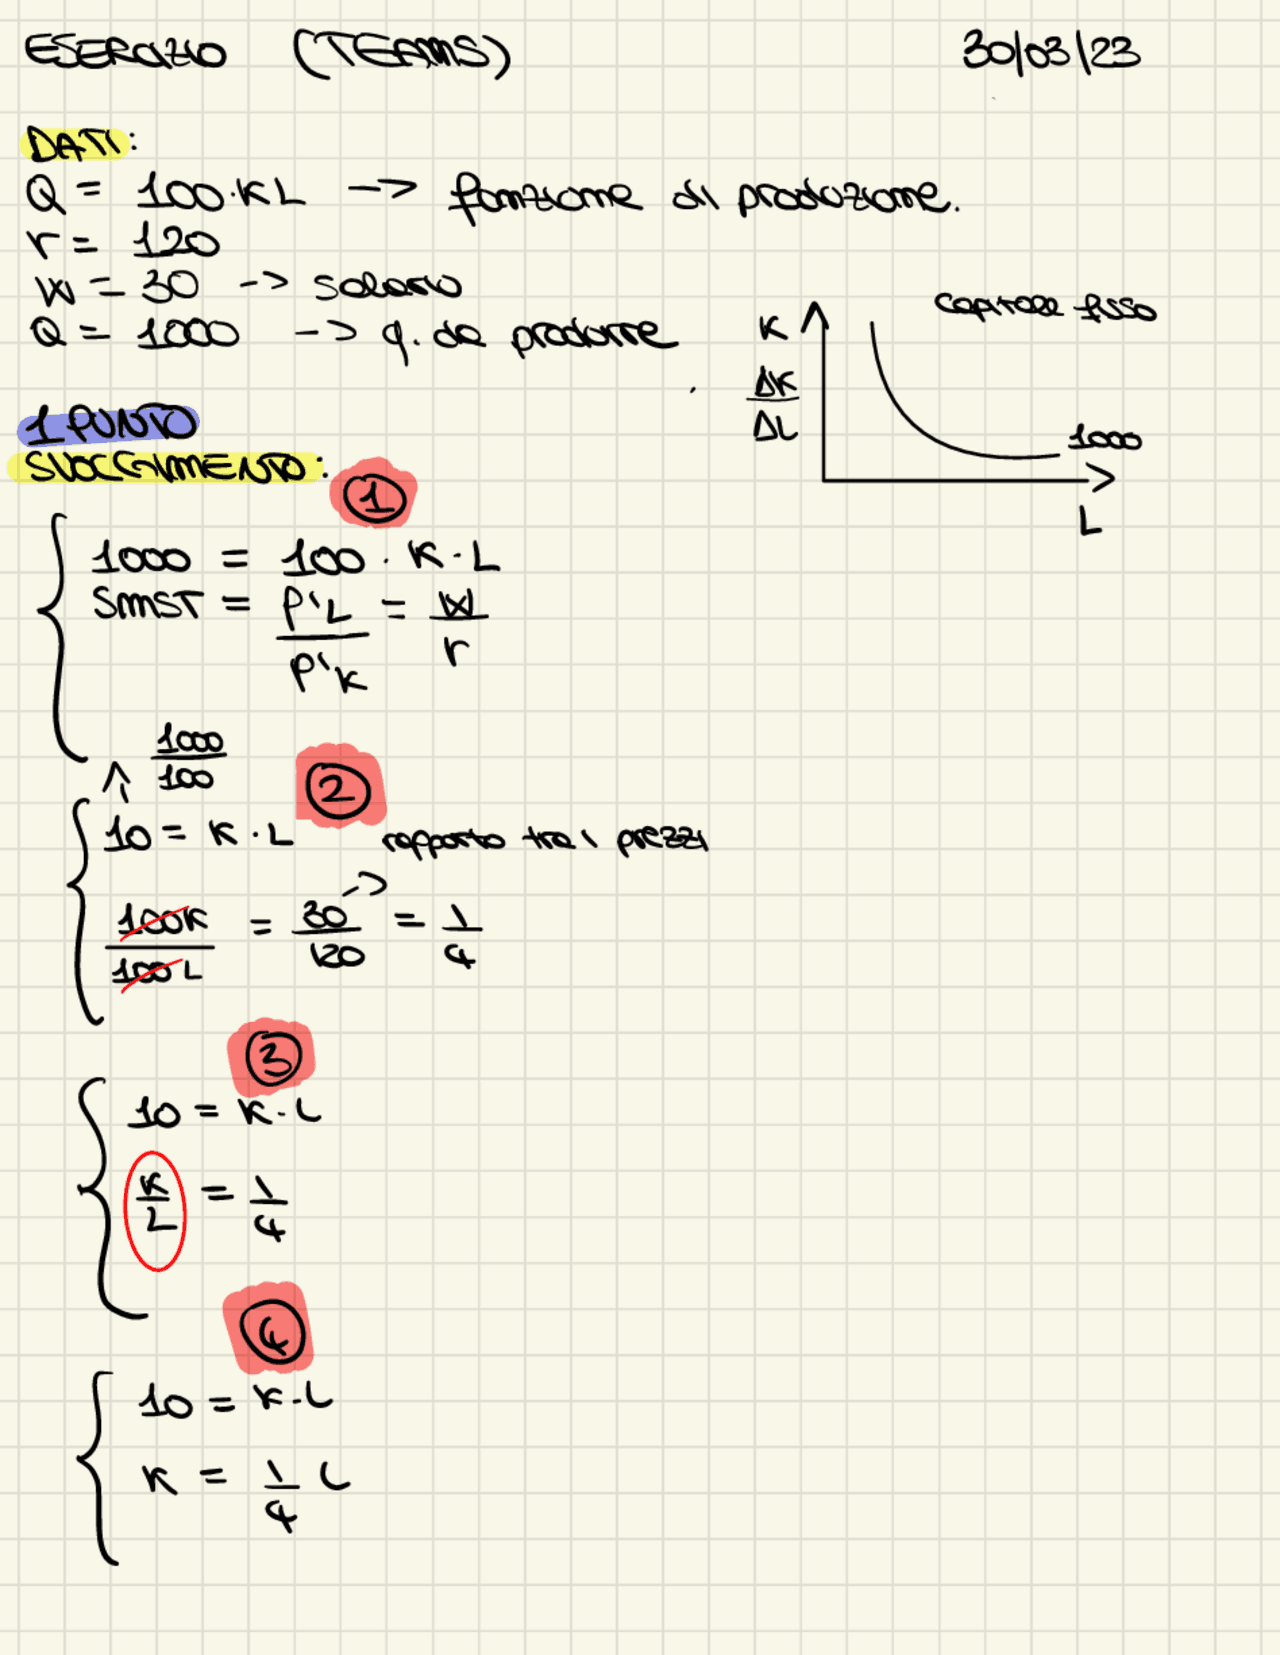 ESERCIZIO (TEAMS) 30/03/23
DATI:
Q = 100·KL -> funzione di produzione.
r = 120
W = 30 -> salario
Q = 1000 -> q. da produrre
capitale fisso
K
ΔK
ΔL
1000
L
1 PUNTO
SVOLGIMENTO:
1
1000 = 100 · K · L
SMST = P'L / P'K = W / r
1000 / 100
2
10 = K · L
rapporto tra i prezzi
->
100K / 100L = 30 / 120 = 1 / 4
3
10 = K · L
K / L = 1 / 4
4
10 = K · L
K = 1 / 4 L